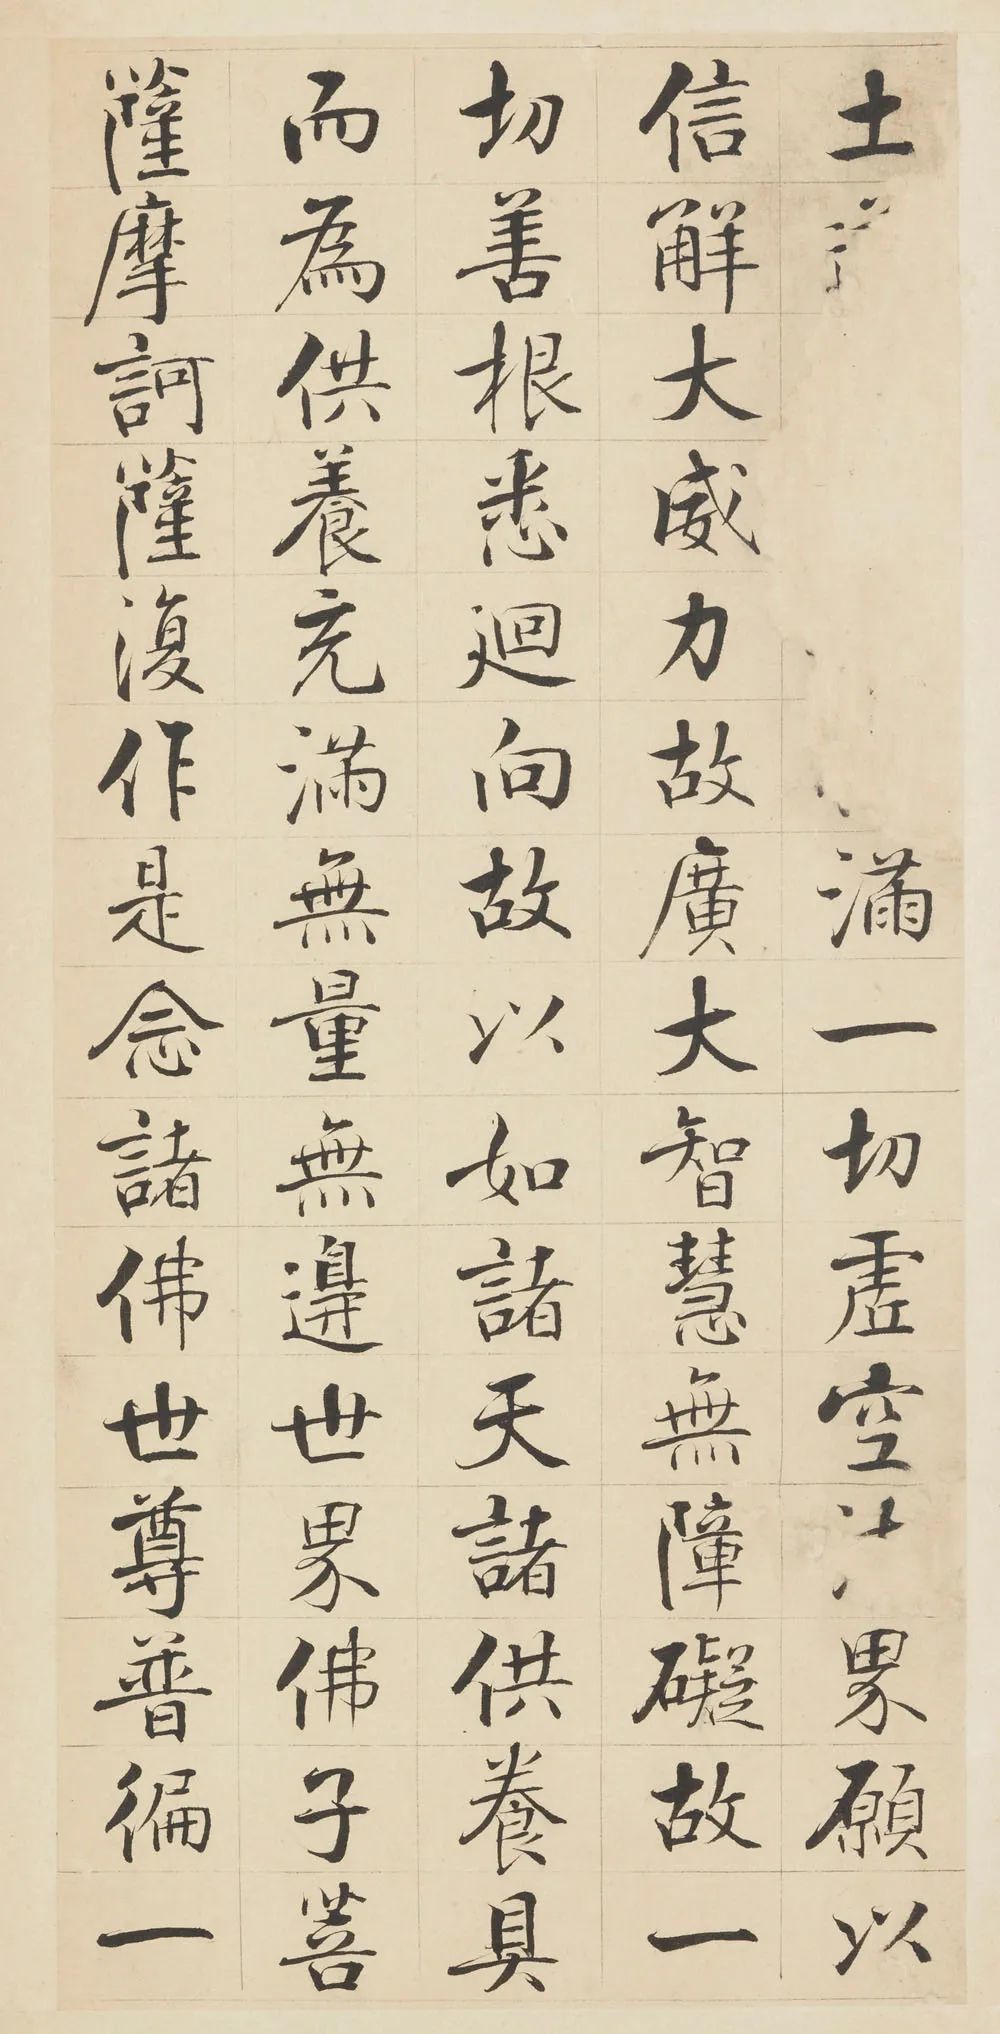 土滿一切虛空界願以
信解大威力故廣大智慧無障礙故一
切善根悉迴向故以如諸天諸供養具
而為供養充滿無量無邊世界佛子菩
薩摩訶薩復作是念諸佛世尊普徧一